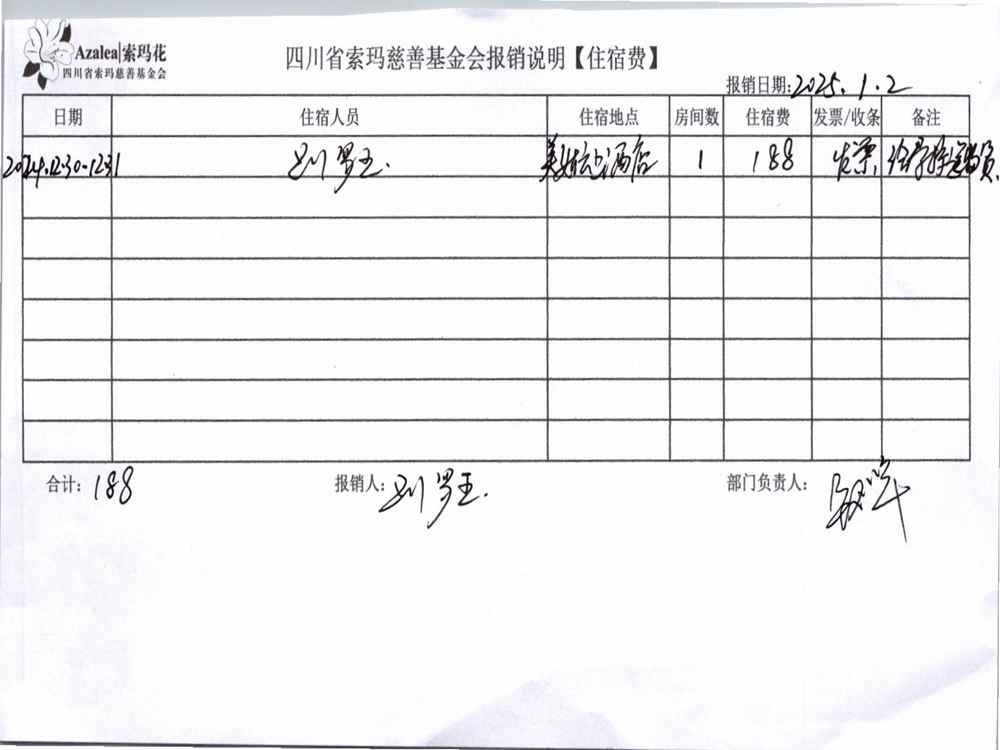 Azalea|索玛花
四川省索玛慈善基金会
四川省索玛慈善基金会报销说明【住宿费】
报销日期:2025.1.2
日期 住宿人员 住宿地点 房间数 住宿费 发票/收条 备注
2024.12.30-12.31 罗王. 酒店 1 188 发票
合计: 188 报销人: 罗王. 部门负责人: